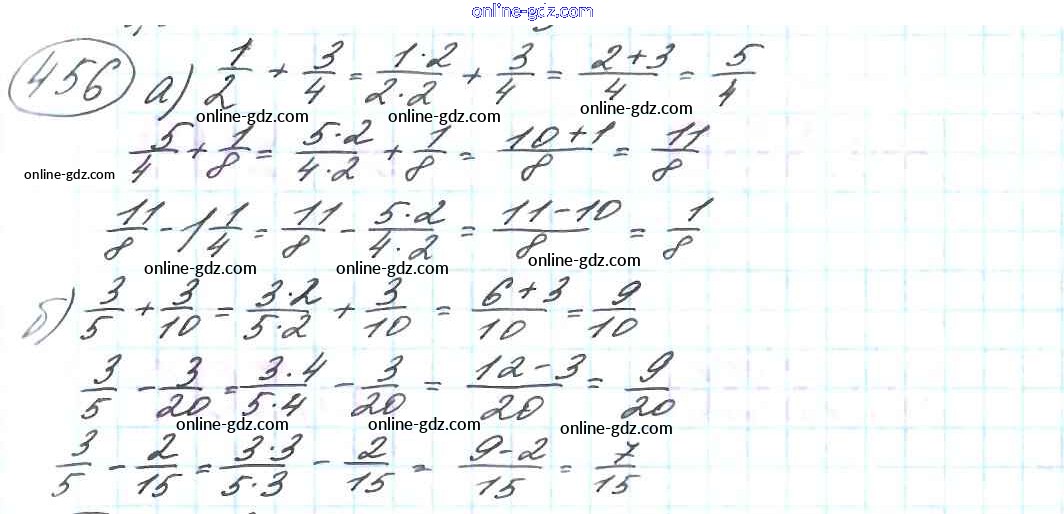 online-gdz.com
456 а) 1/2 + 3/4 = 1·2/2·2 + 3/4 = 2+3/4 = 5/4
online-gdz.com online-gdz.com online-gdz.com
5/4 + 1/8 = 5·2/4·2 + 1/8 = 10+1/8 = 11/8
online-gdz.com
11/8 - 1 1/4 = 11/8 - 5·2/4·2 = 11-10/8 = 1/8
online-gdz.com online-gdz.com online-gdz.com
б) 3/5 + 3/10 = 3·2/5·2 + 3/10 = 6+3/10 = 9/10
3/5 - 3/20 = 3·4/5·4 - 3/20 = 12-3/20 = 9/20
online-gdz.com online-gdz.com online-gdz.com
3/5 - 2/15 = 3·3/5·3 - 2/15 = 9-2/15 = 7/15